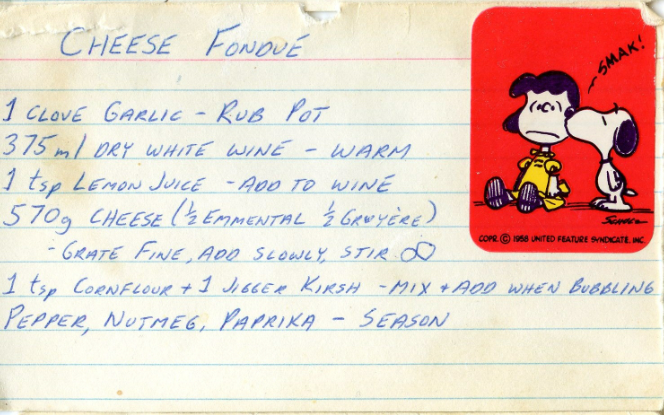 CHEESE FONDUÉ
1 CLOVE GARLIC - RUB POT
375 ml DRY WHITE WINE - WARM
1 tsp LEMON JUICE - ADD TO WINE
570g CHEESE (½ EMMENTAL ½ GRUYÈRE)
- GRATE FINE, ADD SLOWLY, STIR ∞
1 tsp CORNFLOUR + 1 JIGGER KIRSH - MIX + ADD WHEN BUBBLING
PEPPER, NUTMEG, PAPRIKA - SEASON
SMAK!
SCHULZ
COPR. © 1958 UNITED FEATURE SYNDICATE, INC.